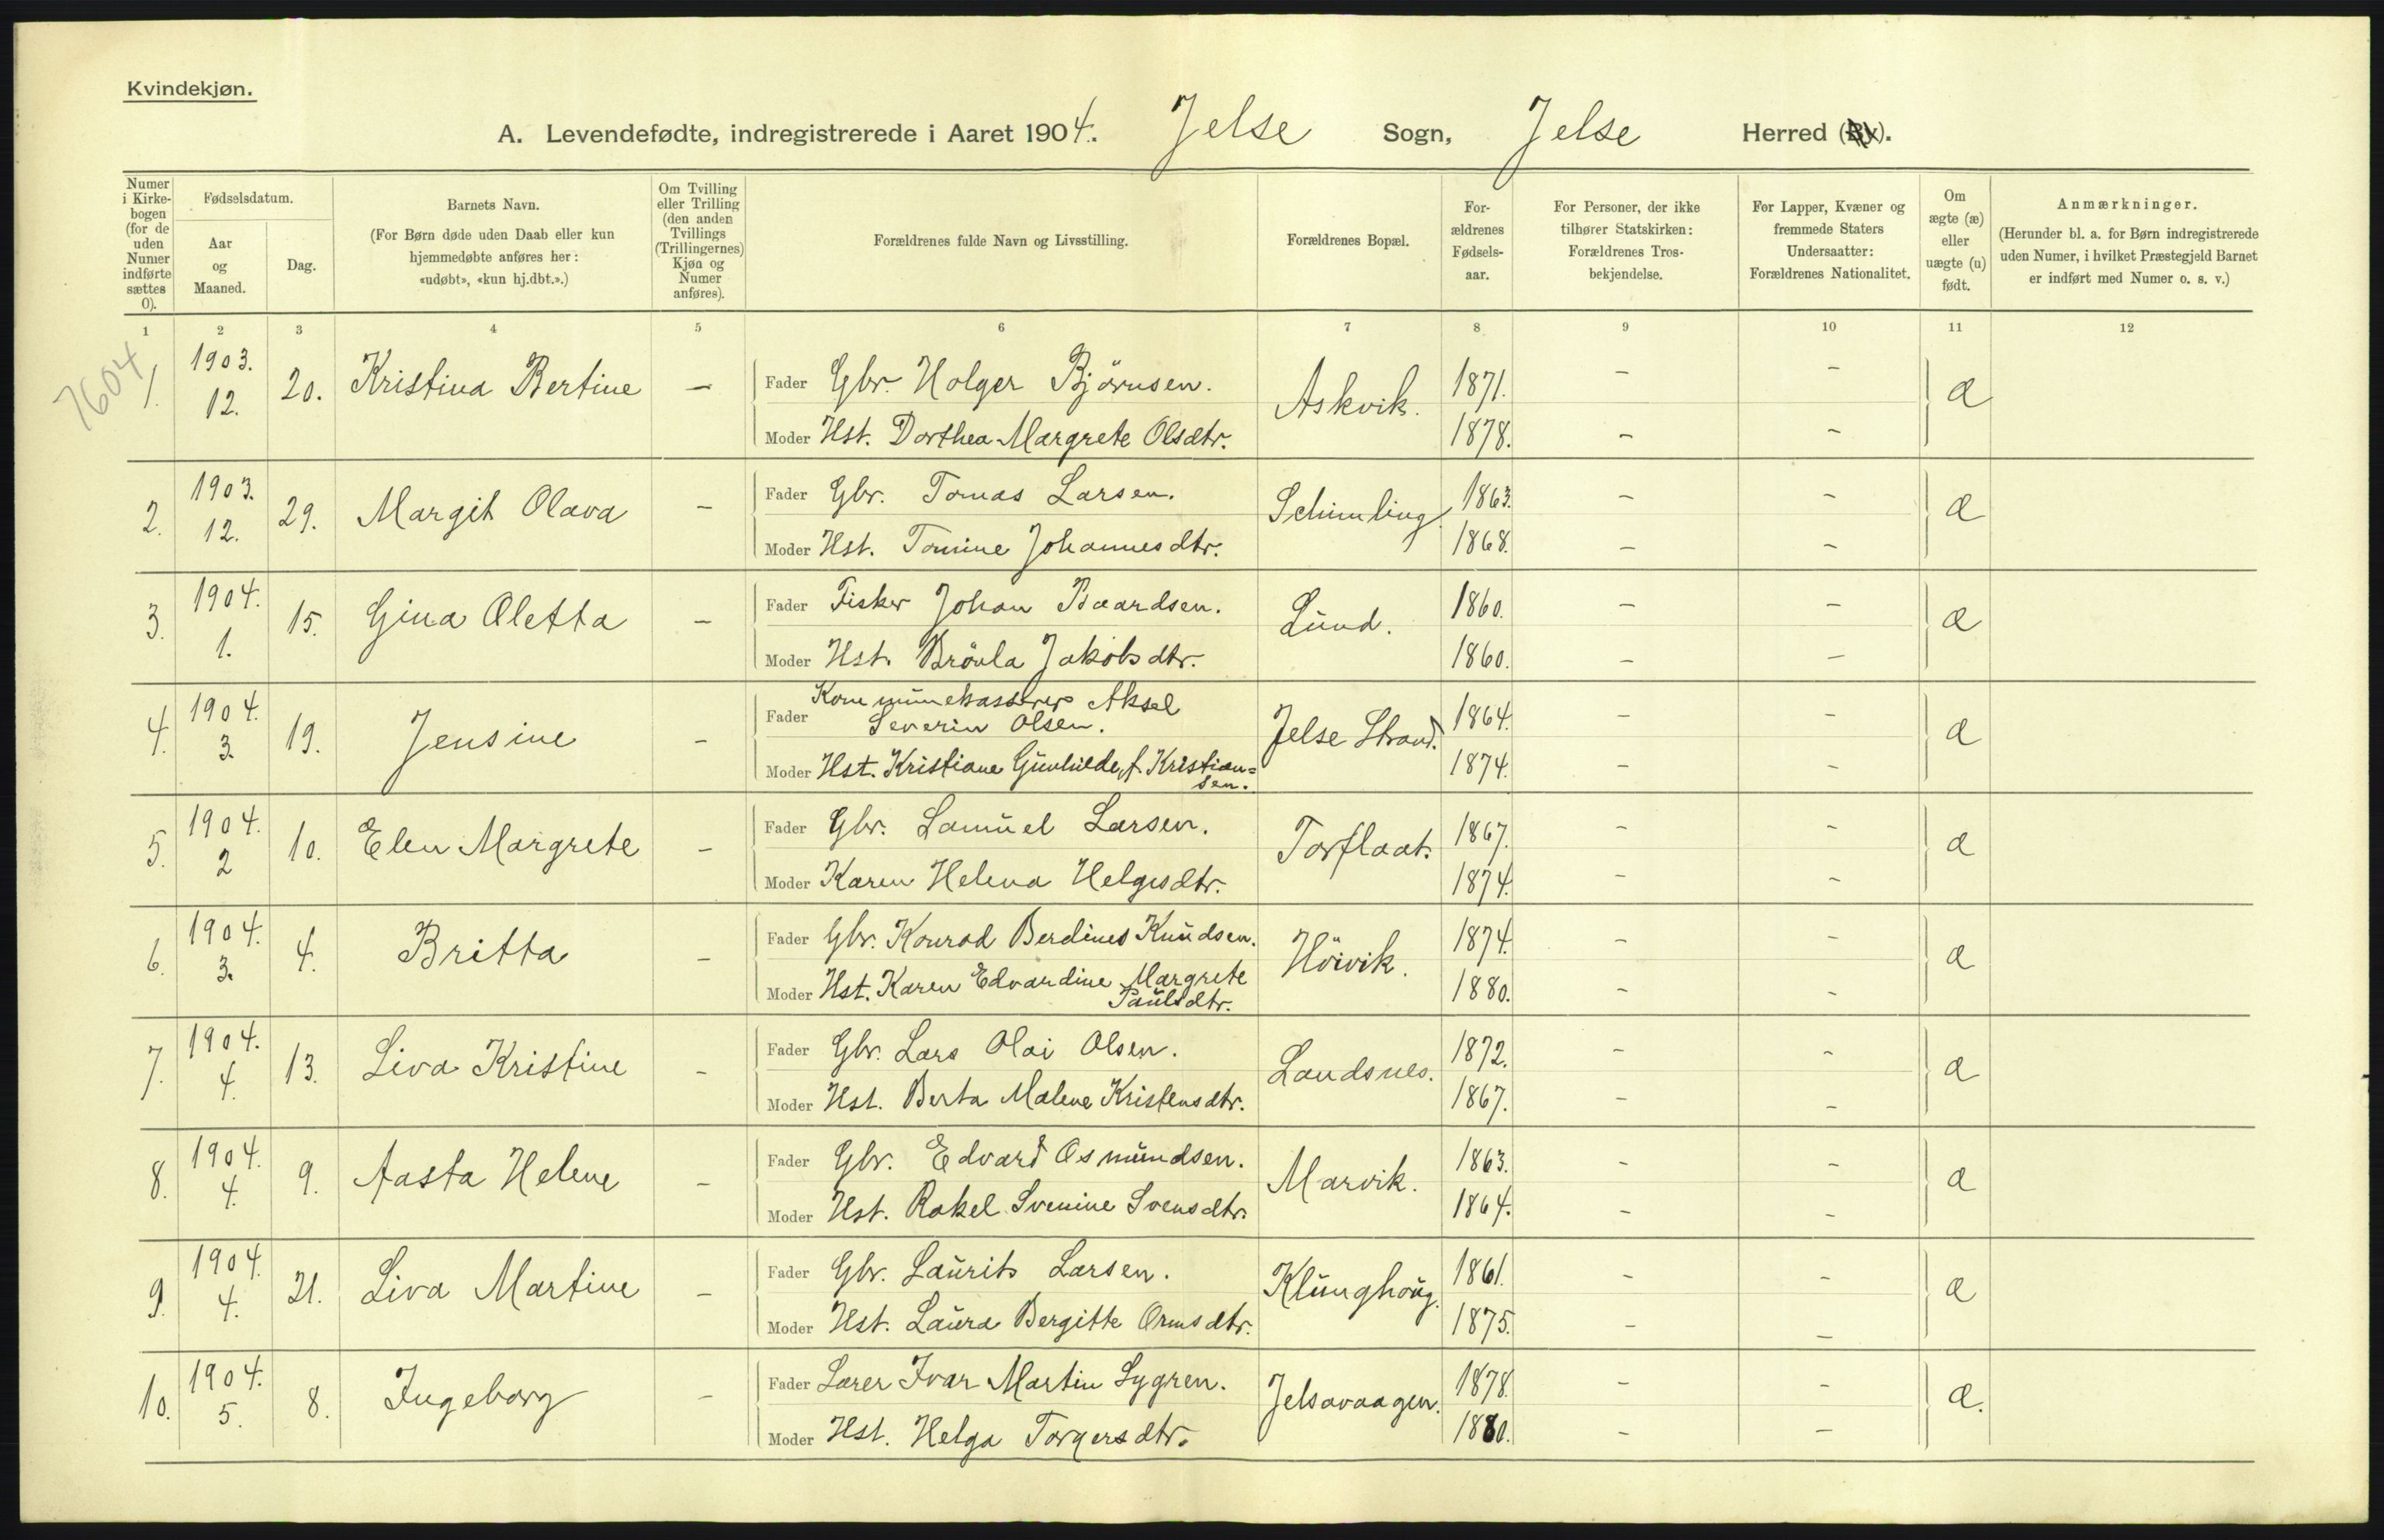 Kvindekjøn.
A. Levendefødte, indregistrerede i Aaret 1904. Jelse Sogn, Jelse Herred (By).
Numer i Kirke-bogen (for de uden Numer indførte sættes 0).
Fødselsdatum.
Aar og Maaned.
Dag.
Barnets Navn.
(For Børn døde uden Daab eller kun hjemmedøbte anføres her: «udøbt», «kun hj.dbt.».)
Om Tvilling eller Trilling (den anden Tvillings (Trillingernes) Kjøn og Numer anføres).
Forældrenes fulde Navn og Livsstilling.
Forældrenes Bopæl.
For-ældrenes Fødsels-aar.
For Personer, der ikke tilhører Statskirken: Forældrenes Tros-bekjendelse.
For Lapper, Kvæner og fremmede Staters Undersaatter: Forældrenes Nationalitet.
Om ægte (æ) eller uægte (u) født.
Anmærkninger.
(Herunder bl. a. for Børn indregistrerede uden Numer, i hvilket Præstegjeld Barnet er indført med Numer o. s. v.)
1 2 3 4 5 6 7 8 9 10 11 12
7604
1. 1903. 12. 20. Kristina Bertine - Fader Gbr. Holger Björnsen. Askvik. 1871. - - æ
Moder Hst. Dorthea Margrete Olsdtr. 1878. - -
2. 1903. 12. 29. Margit Olava - Fader Gbr. Tomas Larsen. Schimling. 1863. - - æ
Moder Hst. Tomine Johannesdtr. 1868. - -
3. 1904. 1. 15. Gina Oletta - Fader Fisker Johan Baardsen. Lund. 1860. - - æ
Moder Hst. Brönla Jakobsdtr. 1860. - -
4. 1904. 3. 19. Jensine - Fader Kommunekasserer Aksel
Severin Olsen. Jelse Strand. 1864. - - æ
Moder Hst. Kristiane Gunhilde, f. Kristian=
sen. 1874. - -
5. 1904. 2 10. Elen Margrete - Fader Gbr. Samuel Larsen. Torflaat. 1867. - - æ
Moder Karen Helena Helgesdtr. 1874. - -
6. 1904. 3. 4. Britta - Fader Gbr. Konrad Berdines Knudsen. Hövik. 1874. - - æ
Moder Hst. Karen Edvardine Margrete
Paulsdtr. 1880. - -
7. 1904. 4. 13. Liva Kristine - Fader Gbr. Lars Olai Olsen. Landsnes. 1872. - - æ
Moder Hst. Berta Malene Kristensdtr. 1867. - -
8. 1904. 4. 9. Aasta Helene - Fader Gbr. Edvard Osmundsen. Marvik. 1863. - - æ
Moder Hst. Rakel Svenine Svensdtr. 1864. - -
9. 1904. 4. 21. Liva Martine - Fader Gbr. Laurits Larsen. Klunghoug. 1861. - - æ
Moder Hst. Laura Bergitte Ormsdtr. 1875. - -
10. 1904. 5. 8. Ingeborg - Fader Lærer Ivar Martin Lygren. Jelsavaagen. 1878. - - æ.
Moder Hst. Helga Torgersdtr. 1880. - -